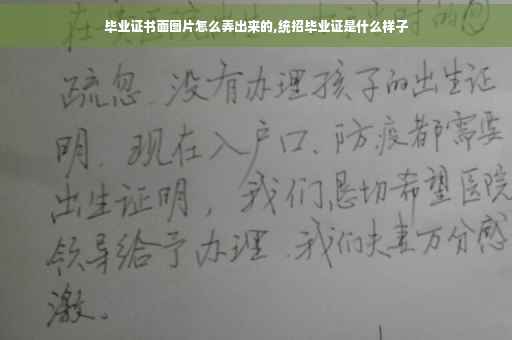 毕业证书面图片怎么弄出来的,统招毕业证是什么样子
疏忽.没有办理孩子的出生证
明.现在入户口、防疫都需要
出生证明,我们恳切希望医院
领导给予办理.我们夫妻万分感
激。